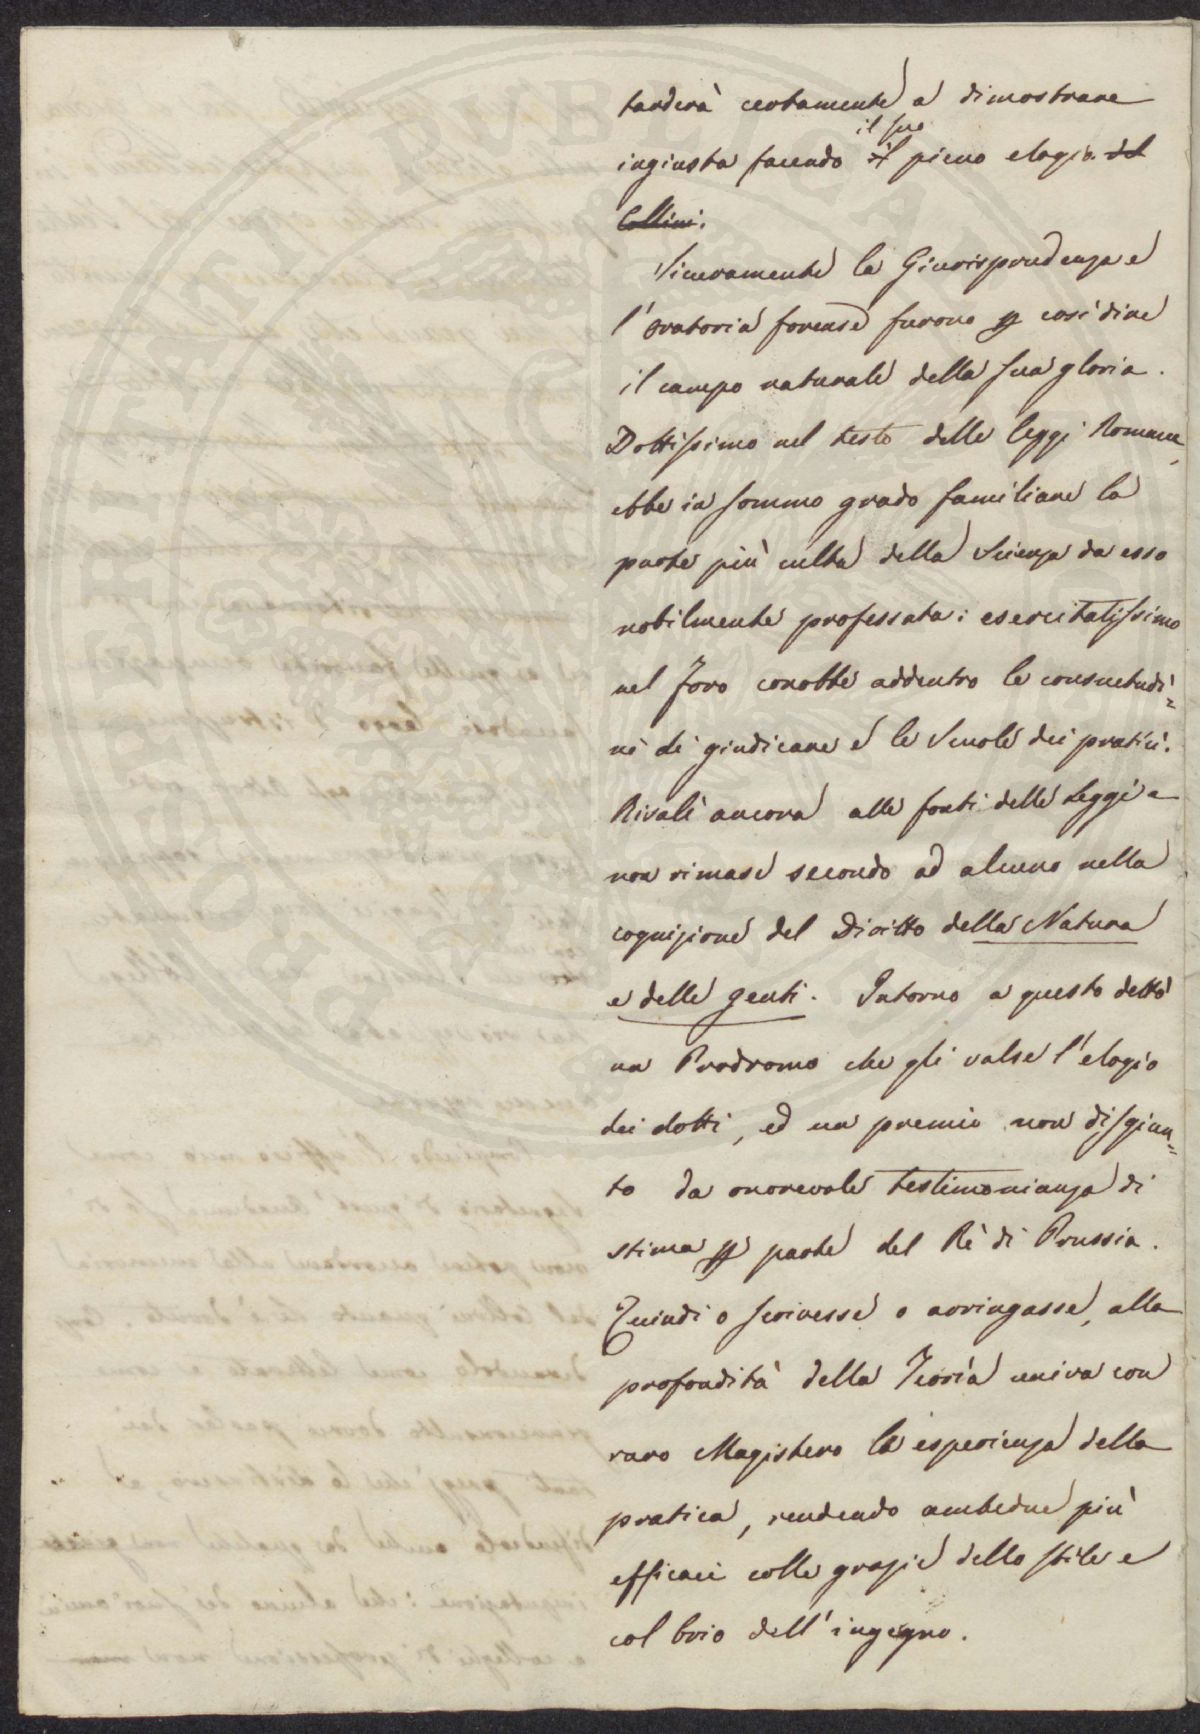 tarderà certamente a dimostrare
il suo
ingiusta facendo il pieno elogio del
Collini.
Sinceramente la Giurisprudenza e
l'oratoria forense furono p così dire
il campo naturale della sua gloria.
Dottissimo nel testo delle leggi Romane,
ebbe in sommo grado familiare la
parte più culta della Scienza da esso
nobilmente professata: esercitatissimo
nel Foro conobbe addentro le consuetudi=
ni di giudicare e le Scuole dei pratici.
Risalì ancora alle fonti delle Leggi e
non rimase secondo ad alcuno nella
cognizione del Diritto della Natura
e delle genti. Intorno a questo dettò
un Prodromo che gli valse l'elogio
dei dotti, ed un premio non disgiun=
to da onorevole testimonianza di
stima p parte del Rè di Prussia.
Quindi o scrivesse o arringasse, alla
profondità della Teoria univa con
raro Magistero la esperienza della
pratica, rendendo ambedue più
efficaci colle grazie dello stile e
col brio dell'ingegno.